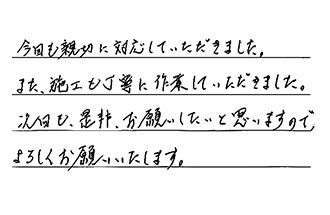 今回も親切に対応していただきました。
また、施工も丁寧に作業していただきました。
次回も、是非、お願いしたいと思いますので、
よろしくお願いいたします。